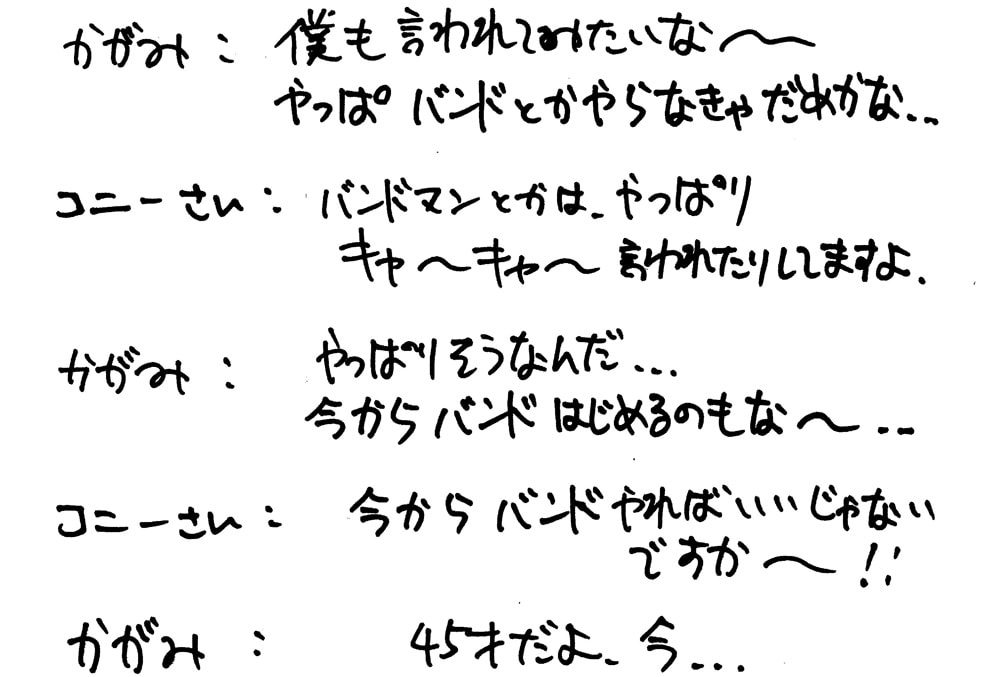 かがみ： 僕も言われてみたいな〜
やっぱバンドとかやらなきゃだめかな...
コニーさん： バンドマンとかは、やっぱり
キャ〜キャ〜言われたりしてますよ.
かがみ： やっぱりそうなんだ...
今からバンドはじめるのもな〜...
コニーさん： 今からバンドやればいいじゃない
ですか〜!!
かがみ： 45才だよ、今...